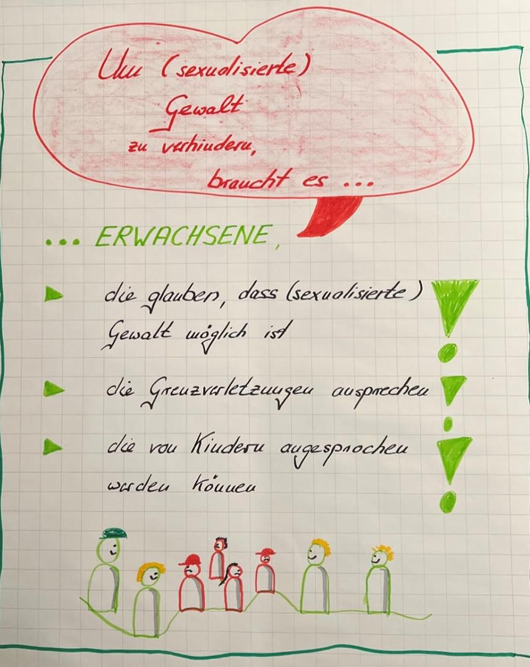 Um (sexualisierte)
Gewalt
zu verhindern,
braucht es ...
... ERWACHSENE,
die glauben, dass (sexualisierte)
Gewalt möglich ist
die Grenzverletzungen ansprechen
die von Kindern angesprochen
werden können